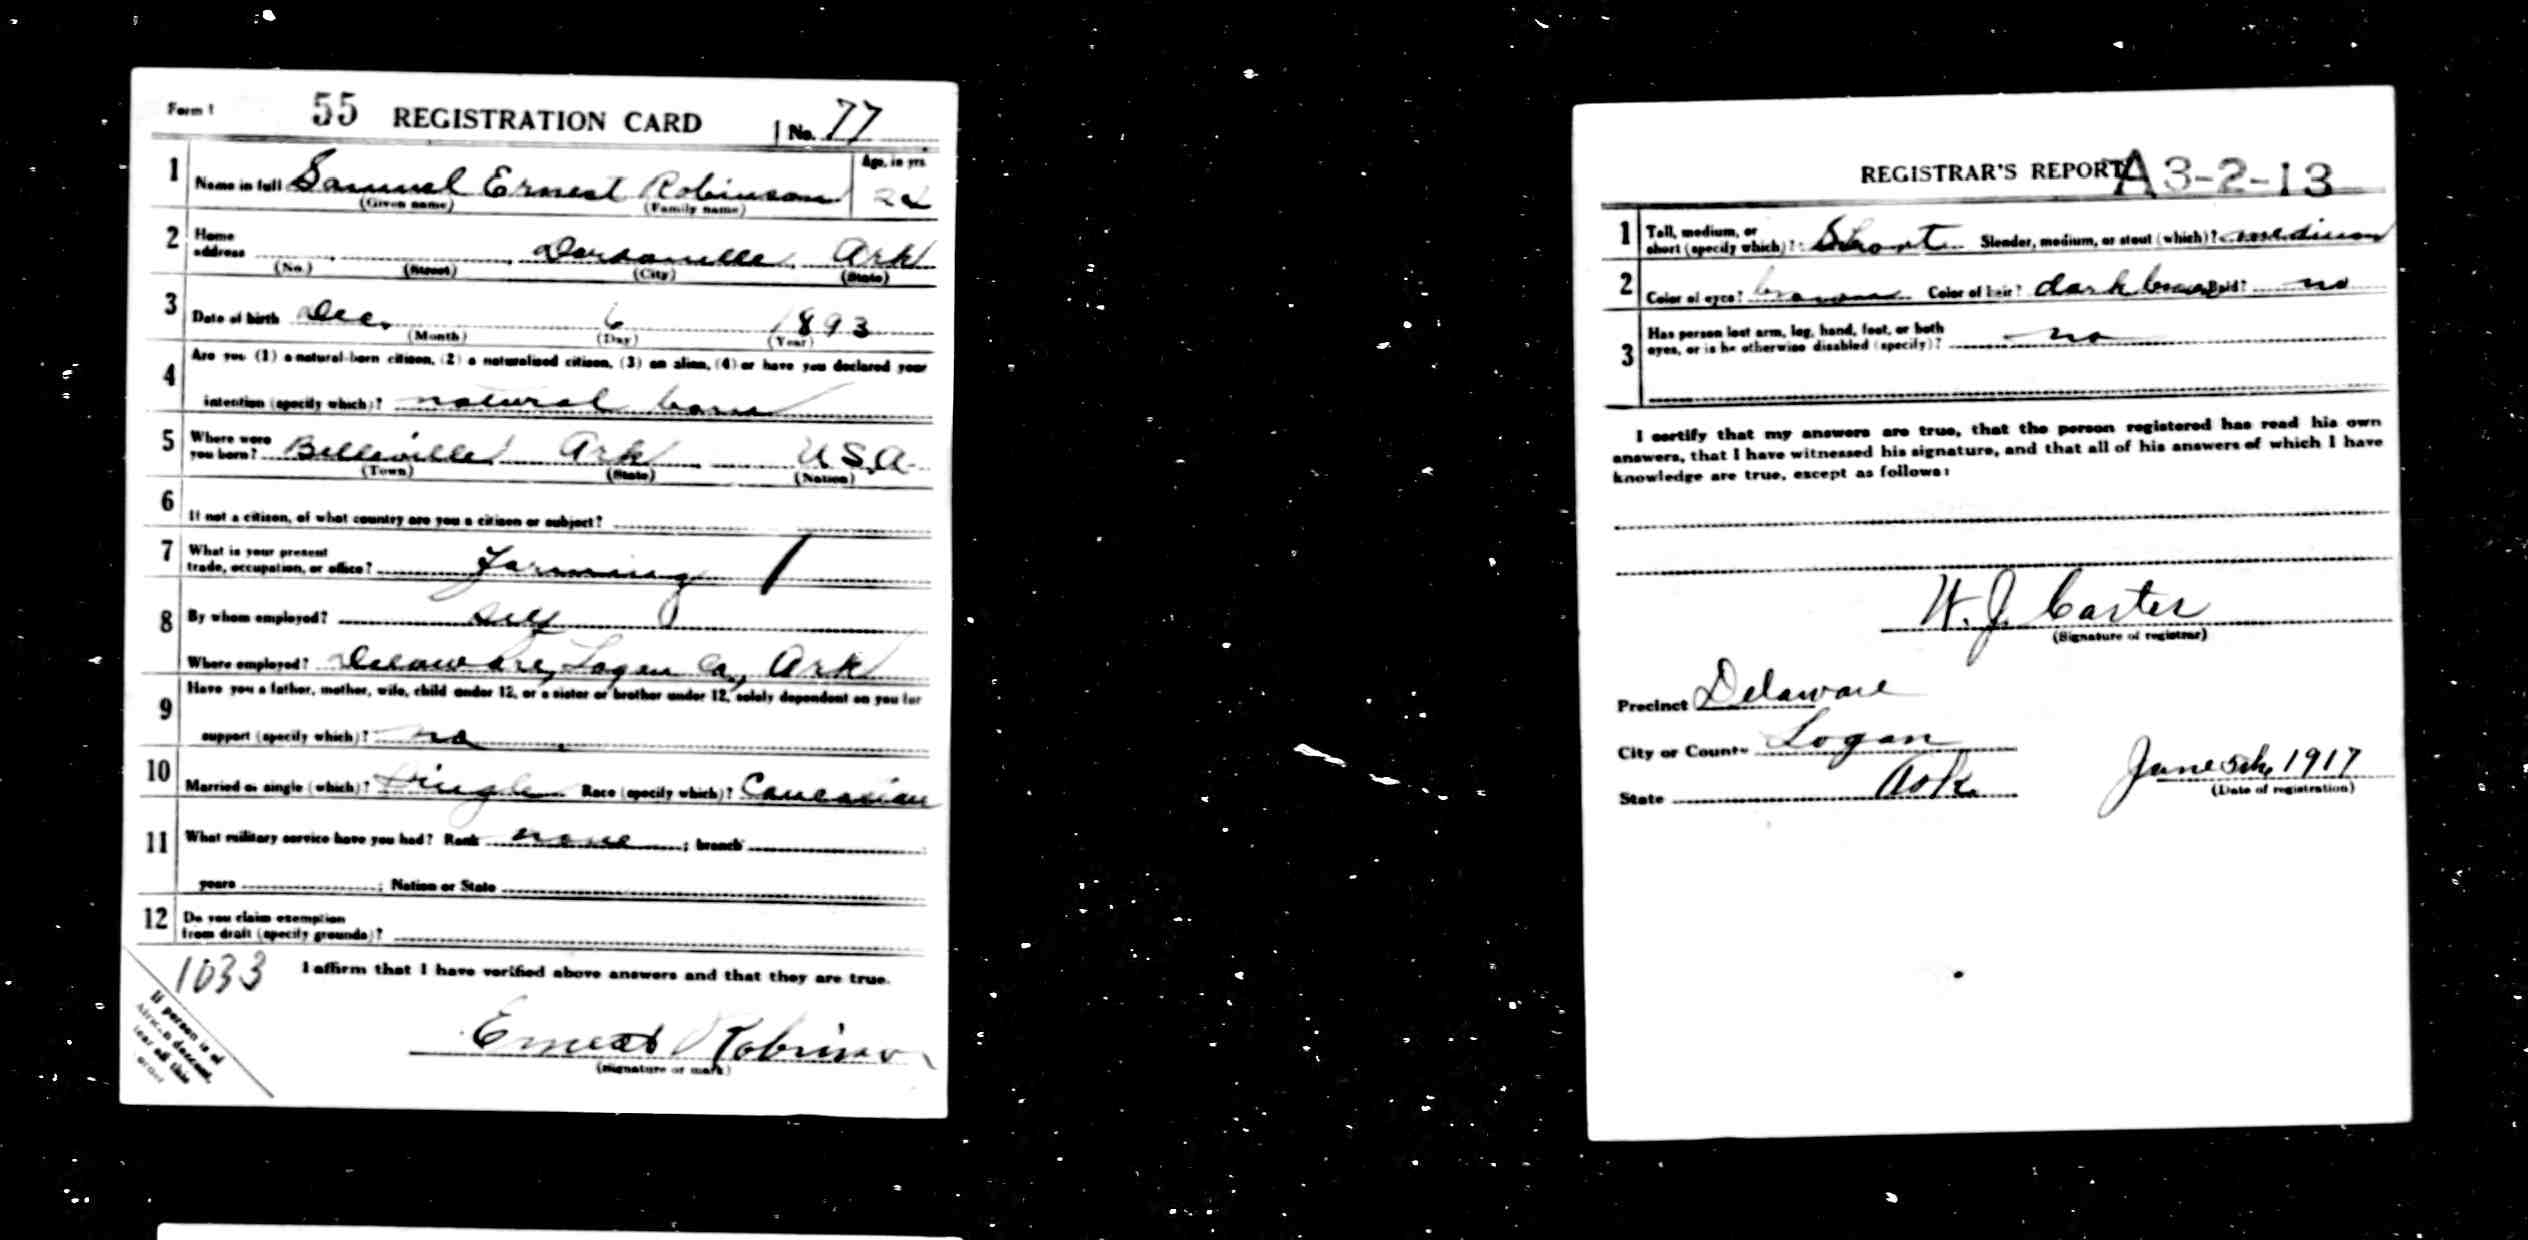 Form 1 55 REGISTRATION CARD No. 77
1 Name in full Samuel Ernest Robinson Age, in yrs. 24
(Given name) (Family name)
2 Home address Dardanelle Ark
(No.) (Street) (City) (State)
3 Date of birth Dec. 6 1893
(Month) (Day) (Year)
4 Are you (1) a natural-born citizen, (2) a naturalized citizen, (3) an alien, (4) or have you declared your
intention (specify which)? natural born
5 Where were you born? Belleville Ark U.S.A.
(Town) (State) (Nation)
6 If not a citizen, of what country are you a citizen or subject?
7 What is your present
trade, occupation, or office? Farming
8 By whom employed? self
Where employed? Delaware, Logan Co, Ark
9 Have you a father, mother, wife, child under 12, or a sister or brother under 12, solely dependent on you for
support (specify which)? no
10 Married or single (which)? Single Race (specify which)? Caucasian
11 What military service have you had? Rank none ; branch
years ; Nation or State
12 Do you claim exemption
from draft (specify grounds)?
1033 I affirm that I have verified above answers and that they are true.
If person is of
African descent,
tear off this
corner
Ernest Robinson
(Signature or mark)
REGISTRAR'S REPORT A3-2-13
1 Tall, medium, or
short (specify which)? Short Slender, medium, or stout (which)? medium
2 Color of eyes? brown Color of hair? dark brown Bald? no
3 Has person lost arm, leg, hand, foot, or both
eyes, or is he otherwise disabled (specify)? no
I certify that my answers are true, that the person registered has read his own
answers, that I have witnessed his signature, and that all of his answers of which I have
knowledge are true, except as follows:
W. J. Carter
(Signature of registrar)
Precinct Delaware
City or County Logan
State Ark.
June 5th, 1917
(Date of registration)